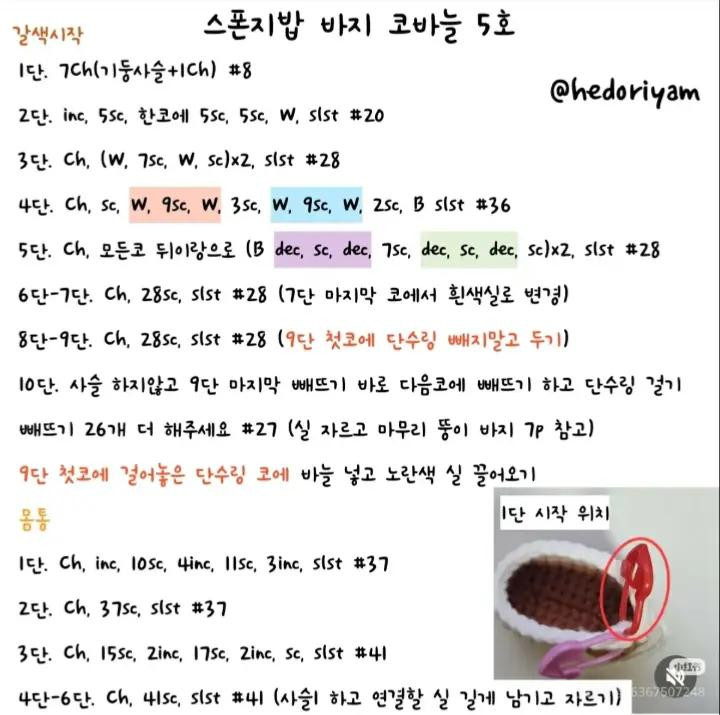 스폰지밥 바지 코바늘 5호
갈색시작
@hedoriyam
1단. 7Ch(기둥사슬+1Ch) #8
2단. inc, 5sc, 한코에 5sc, 5sc, W, slst #20
3단. Ch, (W, 7sc, W, sc)x2, slst #28
4단. Ch, sc, W, 9sc, W, 3sc, W, 9sc, W, 2sc, B slst #36
5단. Ch, 모든코 뒤이랑으로 (B dec, sc, dec, 7sc, dec, sc, dec, sc)x2, slst #28
6단-7단. Ch, 28sc, slst #28 (7단 마지막 코에서 흰색실로 변경)
8단-9단. Ch, 28sc, slst #28 (9단 첫코에 단수링 빼지말고 두기)
10단. 사슬 하지않고 9단 마지막 빼뜨기 바로 다음코에 빼뜨기 하고 단수링 걸기
빼뜨기 26개 더 해주세요 #27 (실 자르고 마무리 뚱이 바지 7p 참고)
9단 첫코에 걸어놓은 단수링 코에 바늘 넣고 노란색 실 끌어오기
몸통
1단 시작 위치
1단. Ch, inc, 10sc, 4inc, 11sc, 3inc, slst #37
2단. Ch, 37sc, slst #37
3단. Ch, 15sc, 2inc, 17sc, 2inc, sc, slst #41
4단-6단. Ch, 41sc, slst #41 (사슬1 하고 연결할 실 길게 남기고 자르기)
6367507248